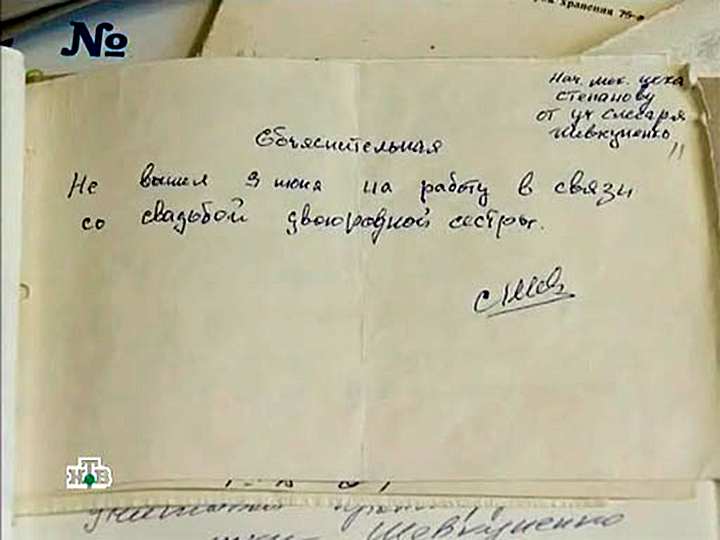 №
хранения 75
Нач. мех. цеха
Степанову
от уч слесаря
Шевкуненко
Объяснительная
Не вышел 9 июня на работу в связи
со свадьбой двоюродной сестры.
НТВ
Шевкуненко